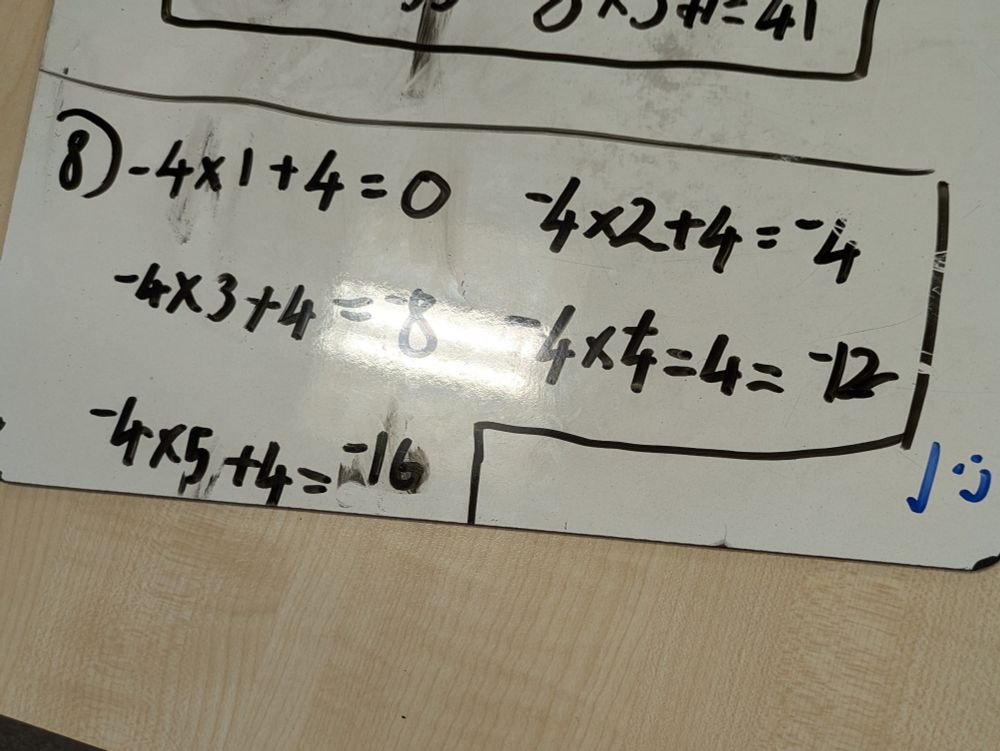 8×5+1=41
8) -4×1+4=0 -4×2+4=-4
-4×3+4=-8 -4×4=4=-12
-4×5+4=-16